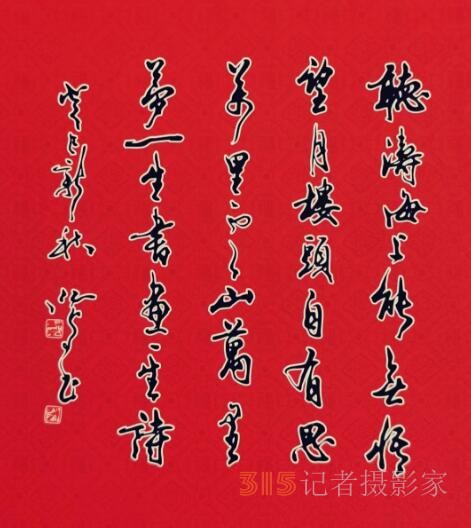 聽濤海上能無悟
望月樓頭自有思
里山萬里
夢一生書畫一生詩
癸巳新秋
315记者摄影家